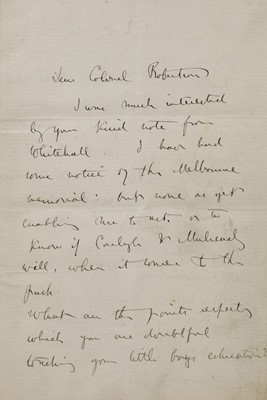 Dear Colonel Robertson
I was much interested
by your kind note from
Whitehall. I have had
some notice of the Melbourne
memorial: but none as yet
enabling me to act, or to
know if Carlyle
will, when it comes to the
push.
What are the points respecting
which you are doubtful
touching your little boys education?